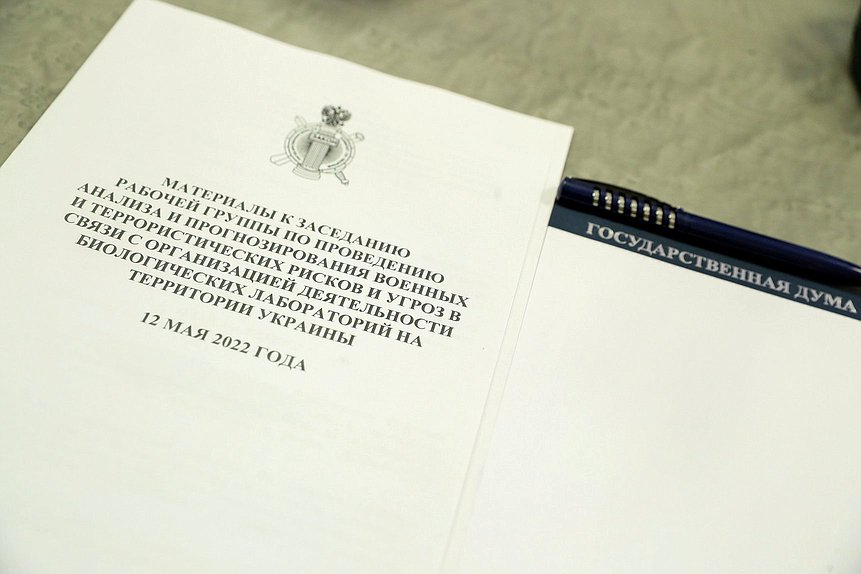 МАТЕРИАЛЫ К ЗАСЕДАНИЮ
РАБОЧЕЙ ГРУППЫ ПО ПРОВЕДЕНИЮ
АНАЛИЗА И ПРОГНОЗИРОВАНИЯ ВОЕННЫХ
И ТЕРРОРИСТИЧЕСКИХ РИСКОВ И УГРОЗ В
СВЯЗИ С ОРГАНИЗАЦИЕЙ ДЕЯТЕЛЬНОСТИ
БИОЛОГИЧЕСКИХ ЛАБОРАТОРИЙ НА
ТЕРРИТОРИИ УКРАИНЫ
12 МАЯ 2022 ГОДА
ГОСУДАРСТВЕННАЯ ДУМА